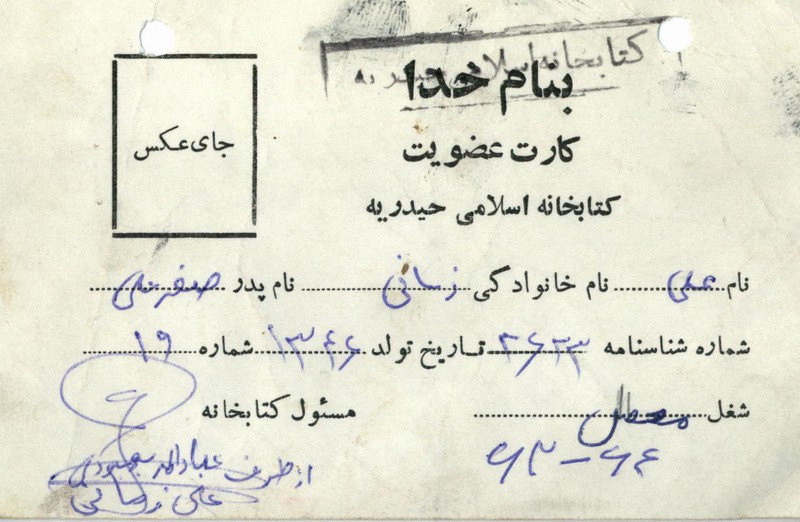 کتابخانه اسلامی حیدریه
بنام خدا
کارت عضویت
کتابخانه اسلامی حیدریه
جای عکس
نام علی نام خانوادگی زمانی نام پدر صفرعلی
شماره شناسنامه ۲۶۲۳ تاریخ تولد ۱۳۴۶ شماره ۱۹
شغل محصل مسئول کتابخانه
۶۳-۶۴
از طرف
علی زمانی